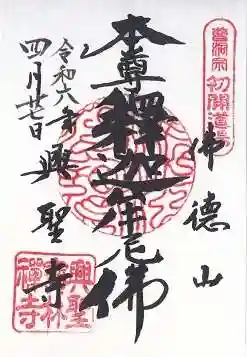 曹洞宗
初開道場
佛德山
本尊釋迦牟尼佛
興聖寺
令和六年
四月廿七日
興聖
禪林
寺